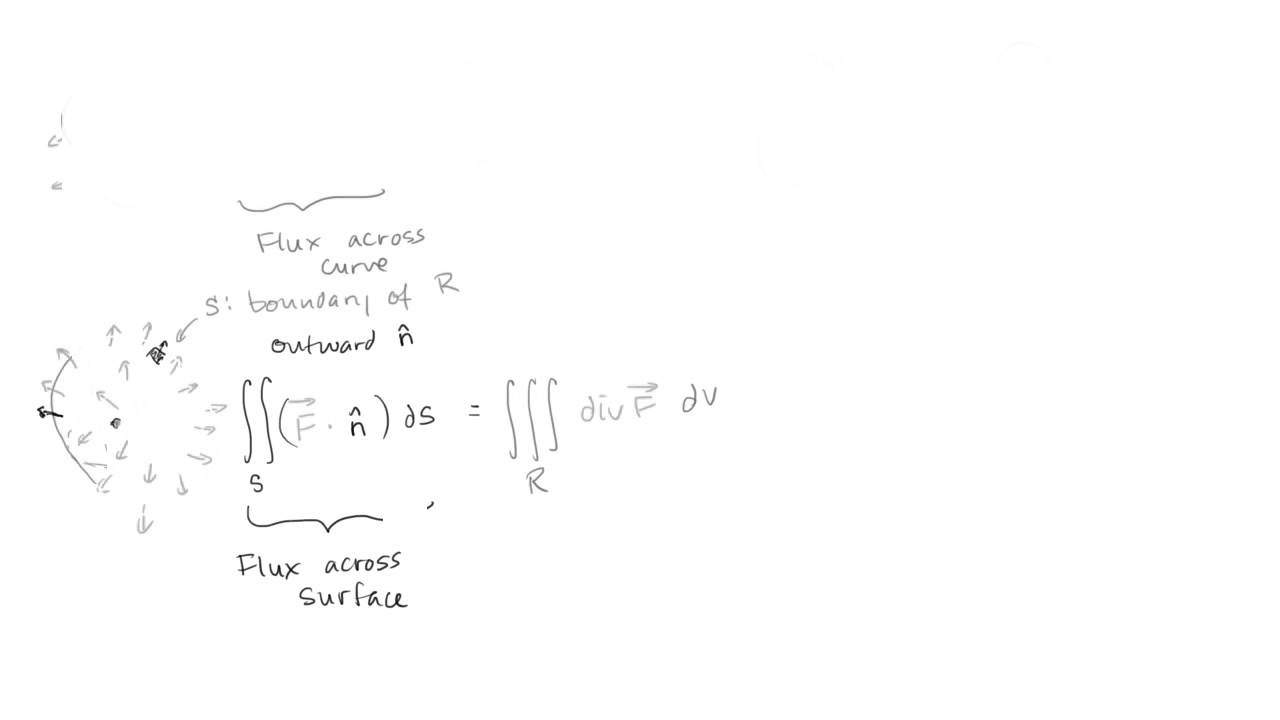 Flux across
curve
S: boundary of R
outward n̂
∬(F⃗ · n̂) ds = ∭ div F⃗ dv
S R
Flux across
surface